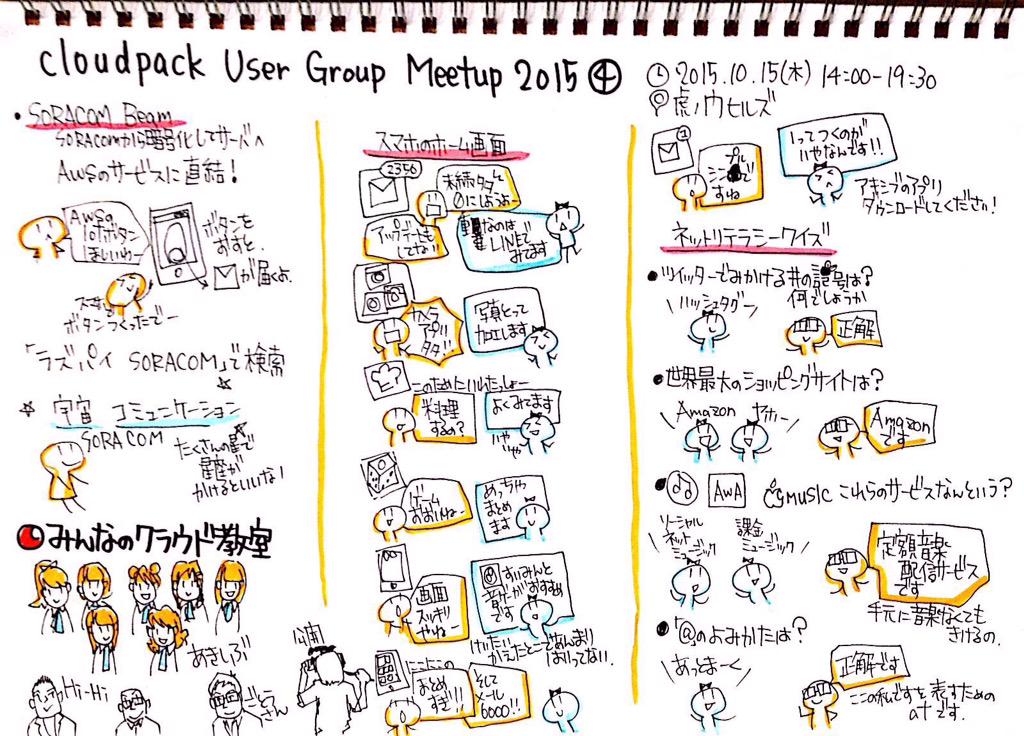 cloudpack User Group Meetup 2015 ④
2015.10.15(木) 14:00-19:30
虎ノ門ヒルズ
・SORACOM Beam
SORACOMから暗号化してサーバへ
AWSのサービスに直結!
AWSの
IoTボタン
ほしいわー
ボタンを
おすと、
が届くよ。
ボタンつくったでー
「ラズパイ SORACOM」で検索
☆宇宙 コミュニケーション☆
SORACOM
たくさんの星で
星座が
かけるといいな!
みんなのクラウド教室
あきしぶ
Hi-Hi
ごとうさん
スマホのホーム画面
2356
未読タブと
0にしようよー
アップデートも
してない!
重要なのは
LINEで
みてます
カメラ
アプリ
タダ
写真とって
加工します
料理
するの?
よくみてます
いや
いや
ゲーム
おおいねー
めっちゃ
まとめ
ます
画面
スッキリ
やねー
かえたとこであんまり
はいってない。
まとめ
すぎ!!
そして
メール
6000!!
1
シンプル
ですね
1ってつくのが
いやなんです!!
アキシブのアプリ
ダウンロードしてください!
ネットリテラシークイズ
●ツイッターでみかける#の記号は?
何でしょうか
ハッシュタグー
正解
●世界最大のショッピングサイトは?
Amazon
Amazon
です
●
AWA
MUSIC これらのサービスなんという?
ソーシャル
ネット
ミュージック
課金
ミュージック
定額音楽
配信サービス
です
手元に音楽なくても
きけるの。
●「@のよみかたは?
あっとまーく
正解です
ここの私ですを表すための
atです.